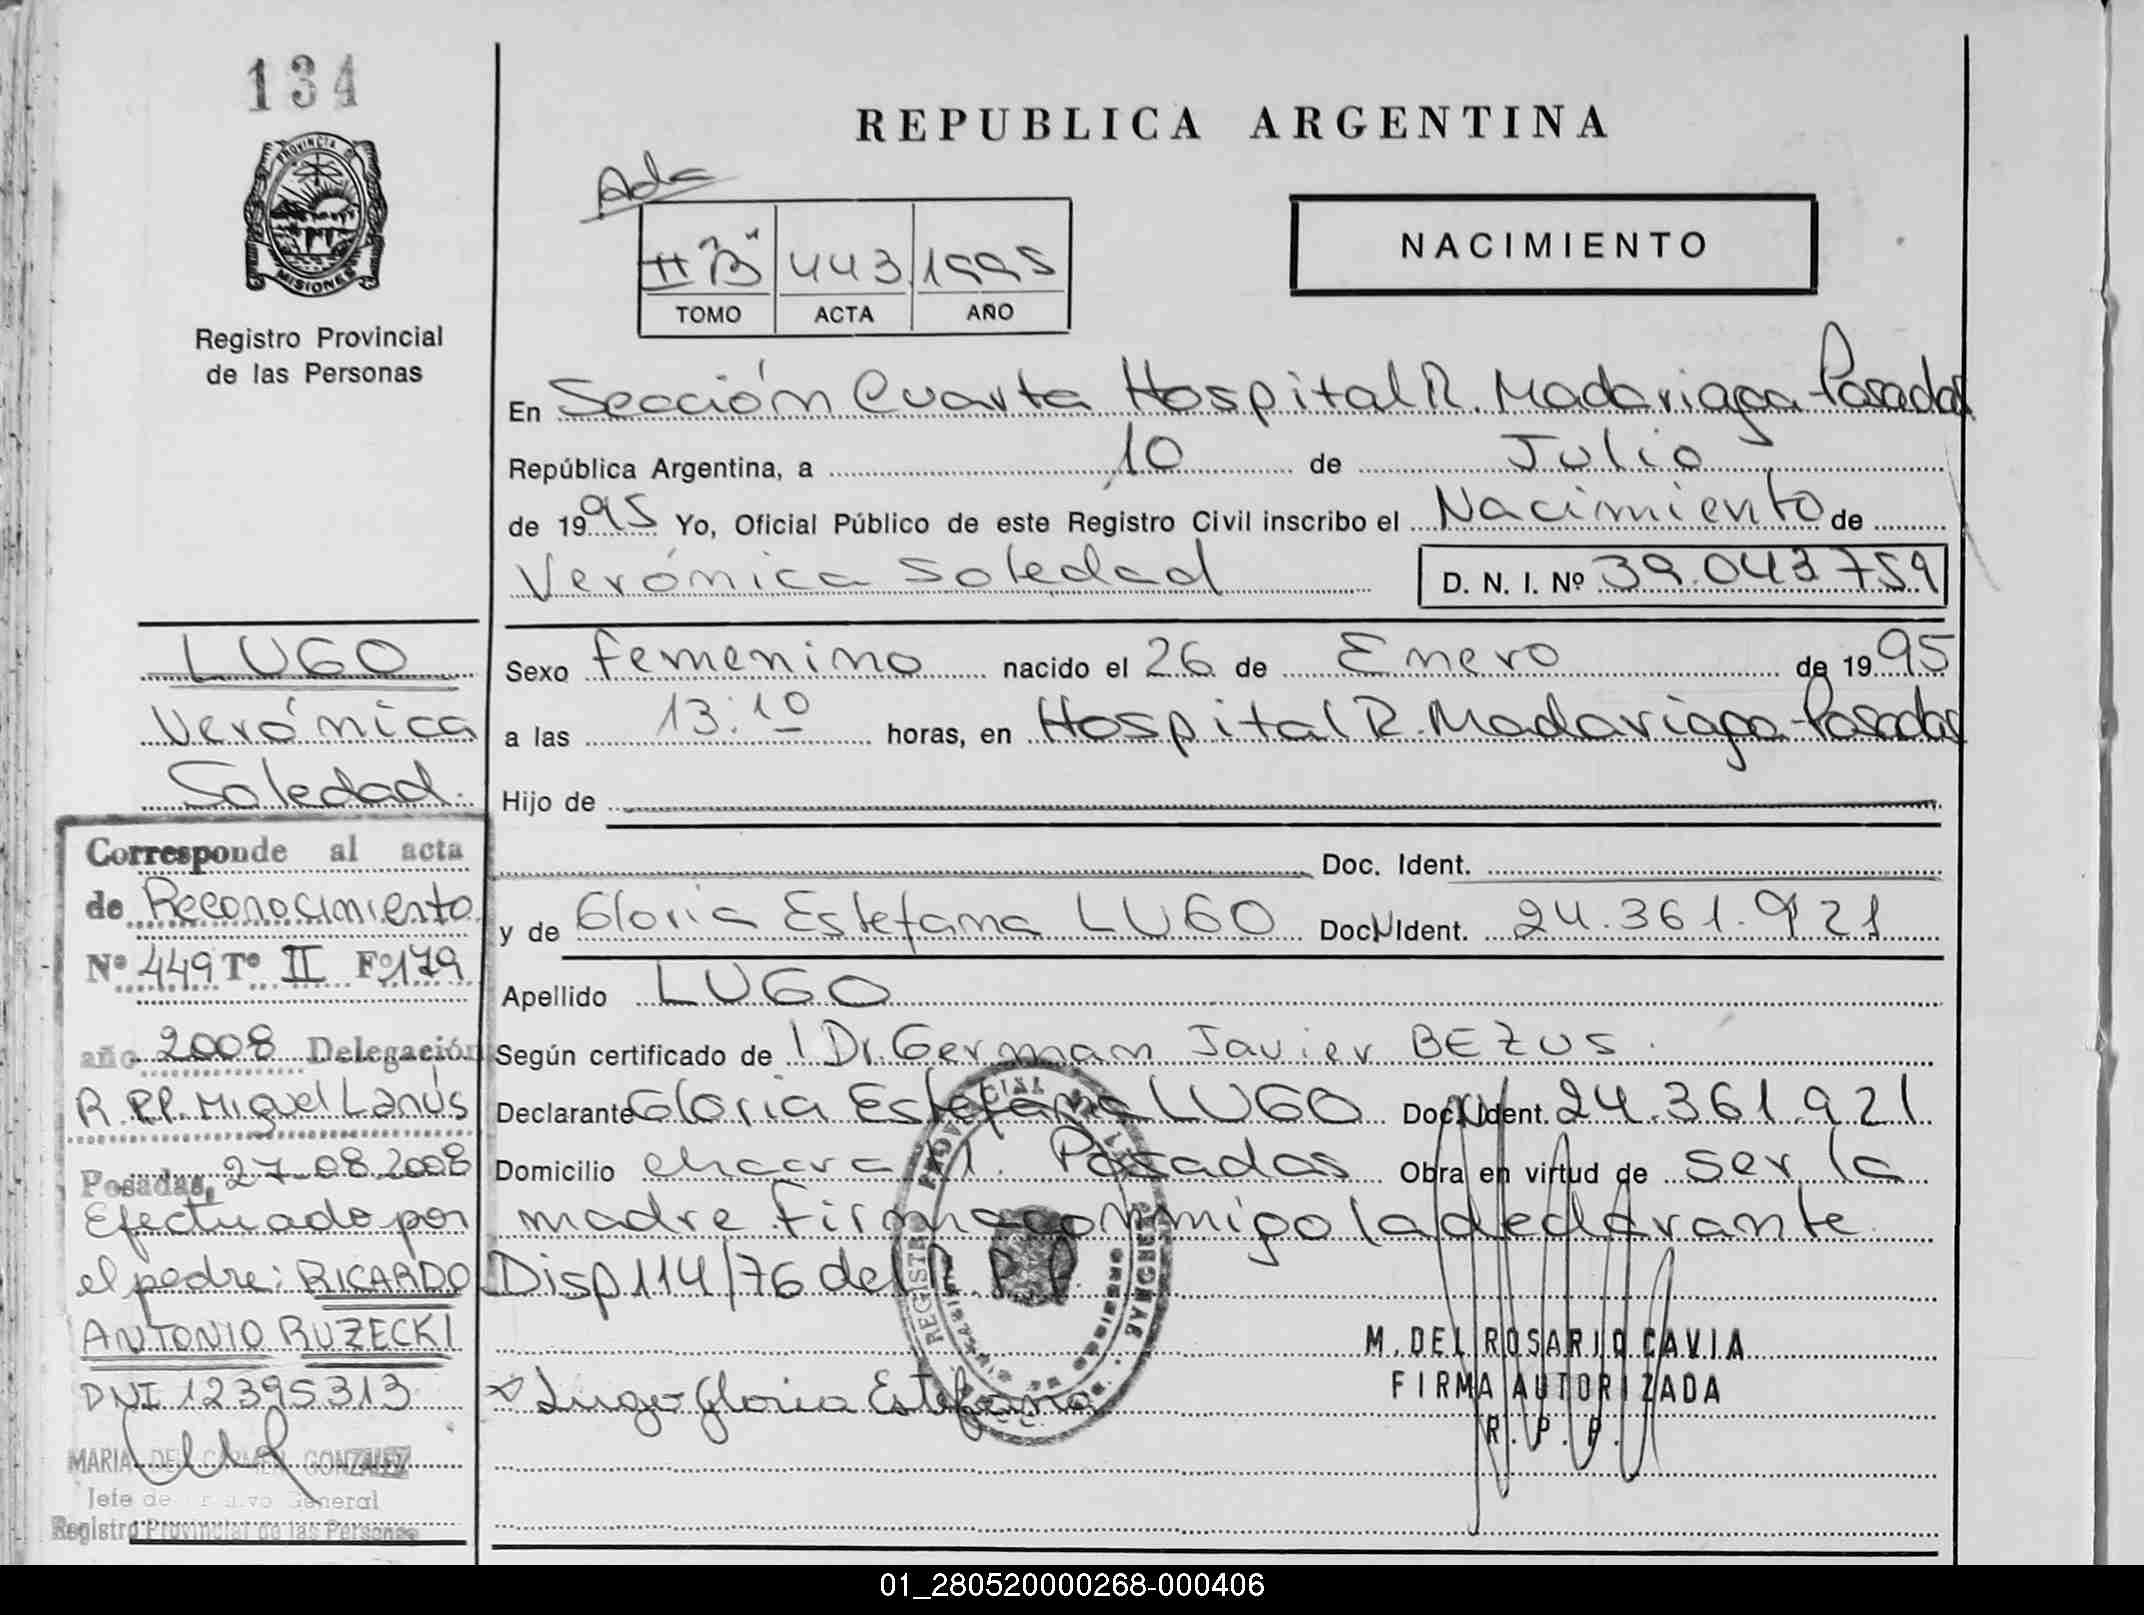 134
PROVINCIA DE
MISIONES
Registro Provincial
de las Personas
REPUBLICA ARGENTINA
Ada
II "B" 443 1995
TOMO ACTA AÑO
NACIMIENTO
En Sección Cuarta Hospital R. Madariaga - Posadas
República Argentina, a 10 de Julio
de 1995 Yo, Oficial Público de este Registro Civil inscribo el Nacimiento de
Verónica Soledad D. N. I. Nº 39.043759
Sexo femenino nacido el 26 de Enero de 1995
a las 13:10 horas, en Hospital R. Madariaga - Posadas
Hijo de
Doc. Ident.
y de Gloria Estefana LUGO Doc. N Ident. 24.361.921
Apellido LUGO
Según certificado de Dr. German Javier BEZUS.
Declarante Gloria Estefana LUGO Doc. N Ident. 24.361.921
Domicilio chacra 11. Posadas Obra en virtud de ser la
madre firma conmigo la declarante
Disp 114/76 del R. P. P.
M. DEL ROSARIO CAVIA
FIRMA AUTORIZADA
R. P. P.
Lugo Gloria Estefana
LUGO
Verónica
Soledad.
Corresponde al acta
de Reconocimiento
Nº 449 Tº II Fº 179
año 2008 Delegación
R.P.P. Miguel Lanús
Posadas, 27-08-2008
Efectuado por
el padre: RICARDO
ANTONIO RUZECKI
DNI 12395313
MARIA DEL CARMEN GONZALEZ
Jefe de Archivo General
Registro Provincial de las Personas
01_280520000268-000406